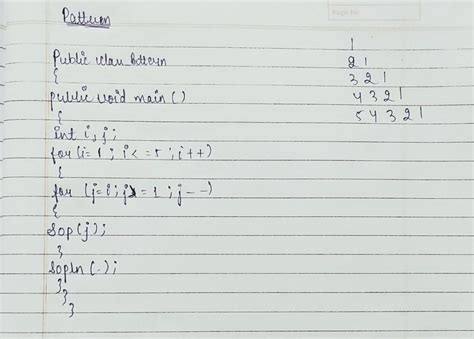 Pattern
Public class Pattern
{
public void main ()
{
int i, j;
for (i=1; i<=5; i++)
{
for (j=i; j>=1; j--)
{
Sop(j);
}
Sopln(.);
}
}
}
1
2 1
3 2 1
4 3 2 1
5 4 3 2 1